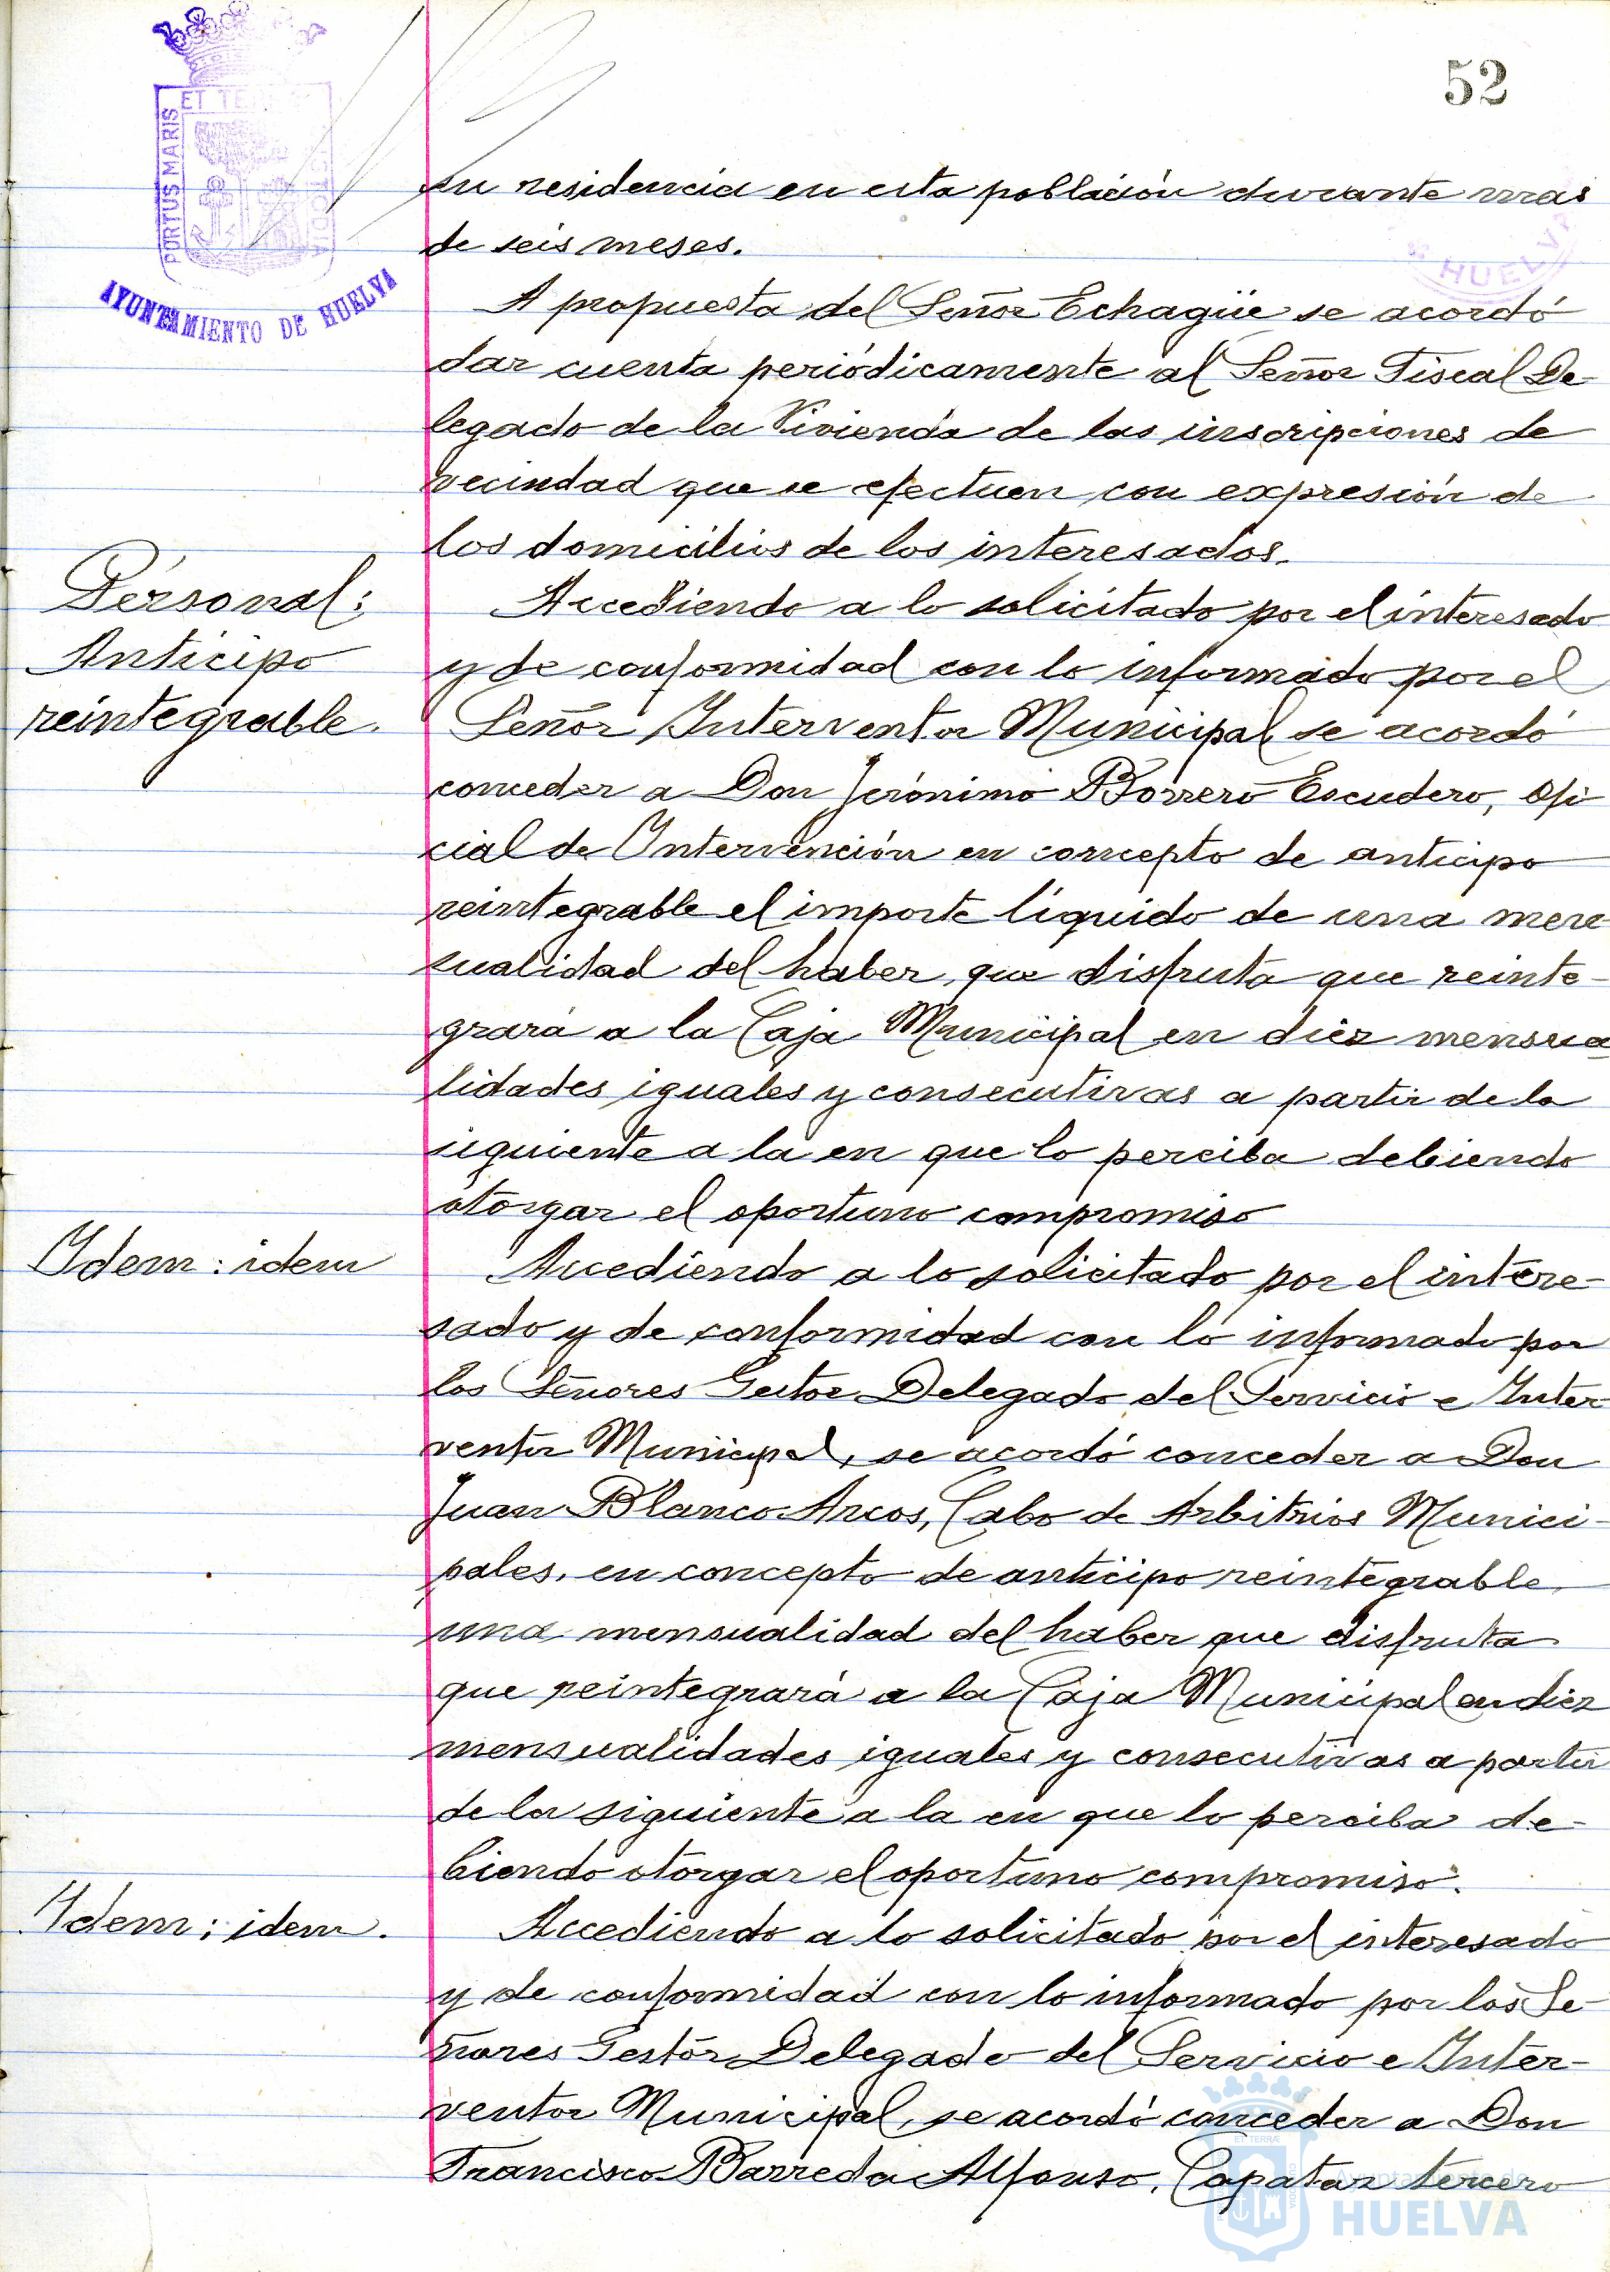 52
ET TE
PORTUS MARIS
AYUNTAMIENTO DE HUELVA
HUELVA
su residencia en esta población durante mas
de seis meses.
A propuesta del Señor Echagüe se acordó
dar cuenta periódicamente al Señor Fiscal De-
legado de la Vivienda de las inscripciones de
vecindad que se efectuen con expresión de
los domicilios de los interesados.
Personal:
Anticipo
reintegrable.
Accediendo a lo solicitado por el interesado
y de conformidad con lo informado por el
Señor Interventor Municipal se acordó
conceder a Don Jerónimo Borrero Escudero, Ofi
cial de Intervención en concepto de anticipo
reintegrable el importe líquido de una men
sualidad del haber que disfruta que reinte-
grará a la Caja Municipal en diez mensua
lidades iguales y consecutivas a partir de la
siguiente a la en que lo perciba debiendo
otorgar el oportuno compromiso
Idem: idem
Accediendo a lo solicitado por el intere-
sado y de conformidad con lo informado por
los Señores Gestor Delegado del Servicio e Inter-
ventor Municipal, se acordó conceder a Don
Juan Blanco Arcos, Cabo de Arbitrios Munici-
pales, en concepto de anticipo reintegrable
una mensualidad del haber que disfruta
que reintegrará a la Caja Municipal en diez
mensualidades iguales y consecutivas a partir
de la siguiente a la en que lo perciba de-
biendo otorgar el oportuno compromiso.
Idem: idem.
Accediendo a lo solicitado por el interesado
y de conformidad con lo informado por los Se-
ñores Gestor Delegado del Servicio e Inter-
ventor Municipal, se acordó conceder a Don
Francisco Barreda Alfonso, Capataz tercero
Ayuntamiento de
HUELVA